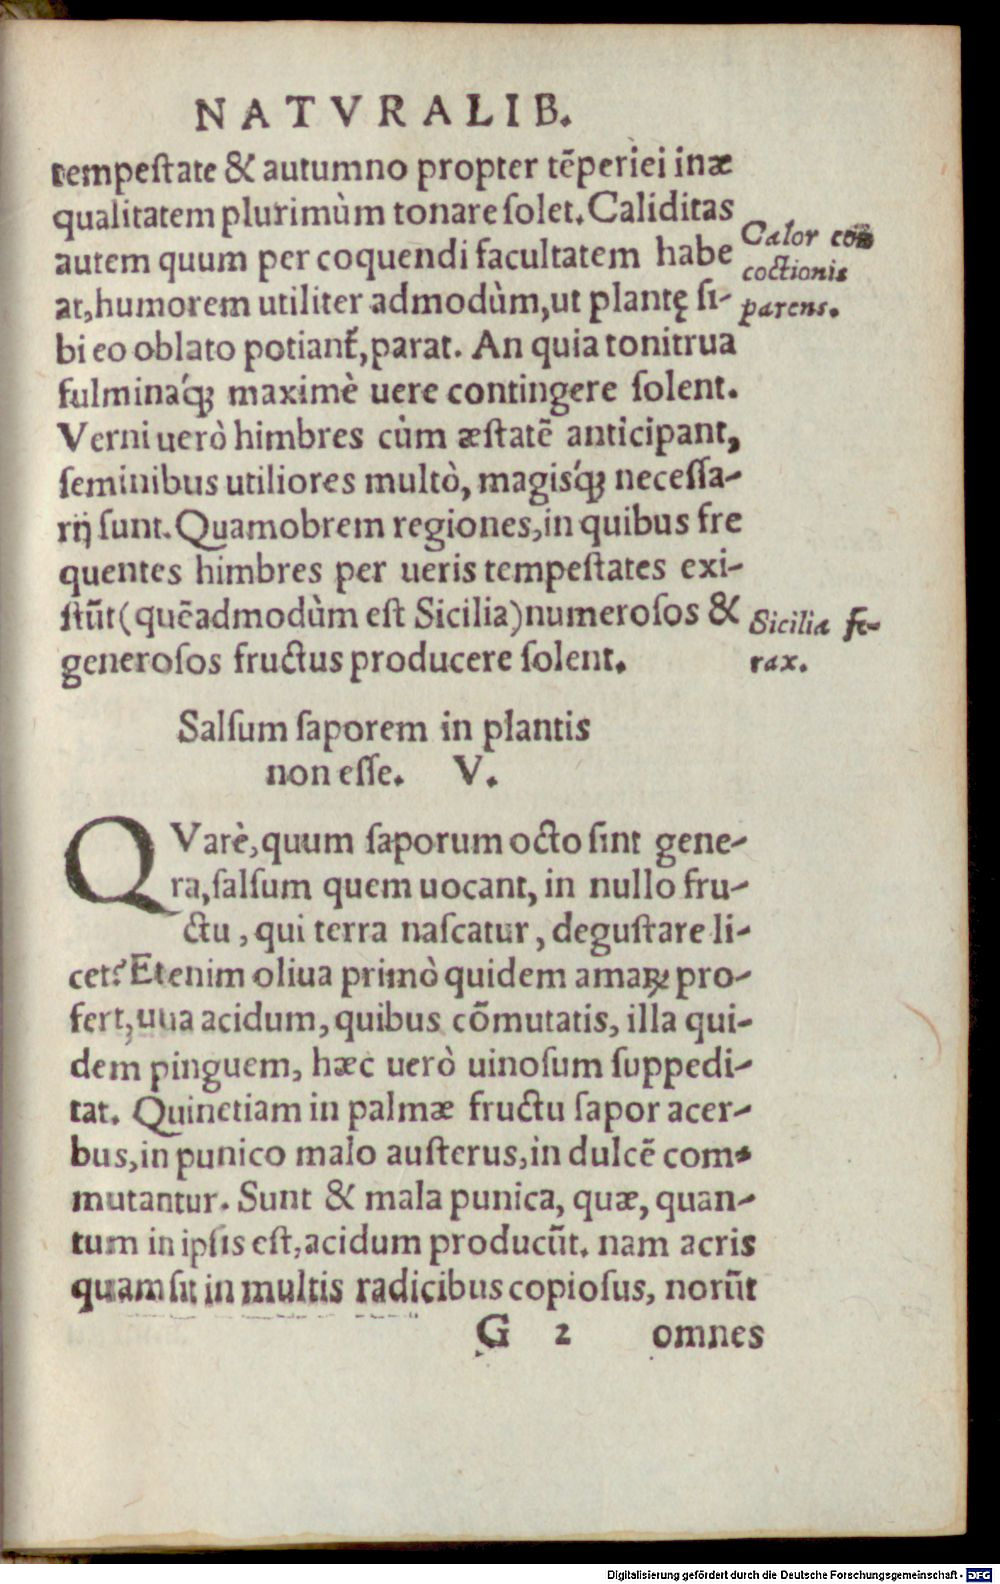 NATVRALIB.
tempeſtate & autumno propter tēperiei inæ
qualitatem plurimùm tonare ſolet. Caliditas
autem quum per coquendi facultatem habe
at, humorem utiliter admodùm, ut plantę ſi-
bi eo oblato potiant᷑, parat. An quia tonitrua
fulminaq́ꝫ maximè uere contingere ſolent.
Verni uerò himbres cùm æſtatē anticipant,
ſeminibus utiliores multò, magisq́ꝫ neceſſa-
rij ſunt. Quamobrem regiones, in quibus fre
quentes himbres per ueris tempeſtates exi-
ſtūt (quēadmodùm eſt Sicilia) numeroſos &
generoſos fructus producere ſolent.
Calor con
coctionis
parens.
Sicilia fe-
rax.
Salſum ſaporem in plantis
non eſſe. V.
QVarè, quum ſaporum octo ſint gene-
ra, ſalſum quem uocant, in nullo fru-
ctu, qui terra naſcatur, deguſtare li-
cet? Etenim oliua primò quidem amaꝝ pro-
fert, uua acidum, quibus cōmutatis, illa qui-
dem pinguem, hæc uerò uinoſum ſuppedi-
tat. Quinetiam in palmæ fructu ſapor acer-
bus, in punico malo auſterus, in dulcē com-
mutantur. Sunt & mala punica, quæ, quan-
tum in ipſis eſt, acidum producūt. nam acris
quam ſit in multis radicibus copioſus, norūt
G 2 omnes
Digitalisierung gefördert durch die Deutsche Forschungsgemeinschaft - DFG